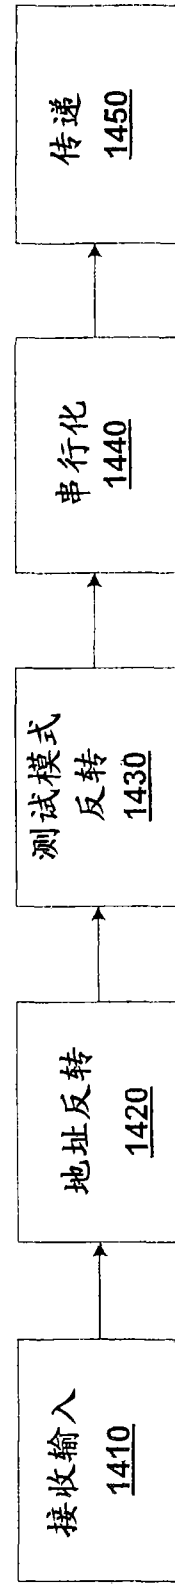 接收输入
1410
地址反转
1420
测试模式
反转
1430
串行化
1440
传递
1450